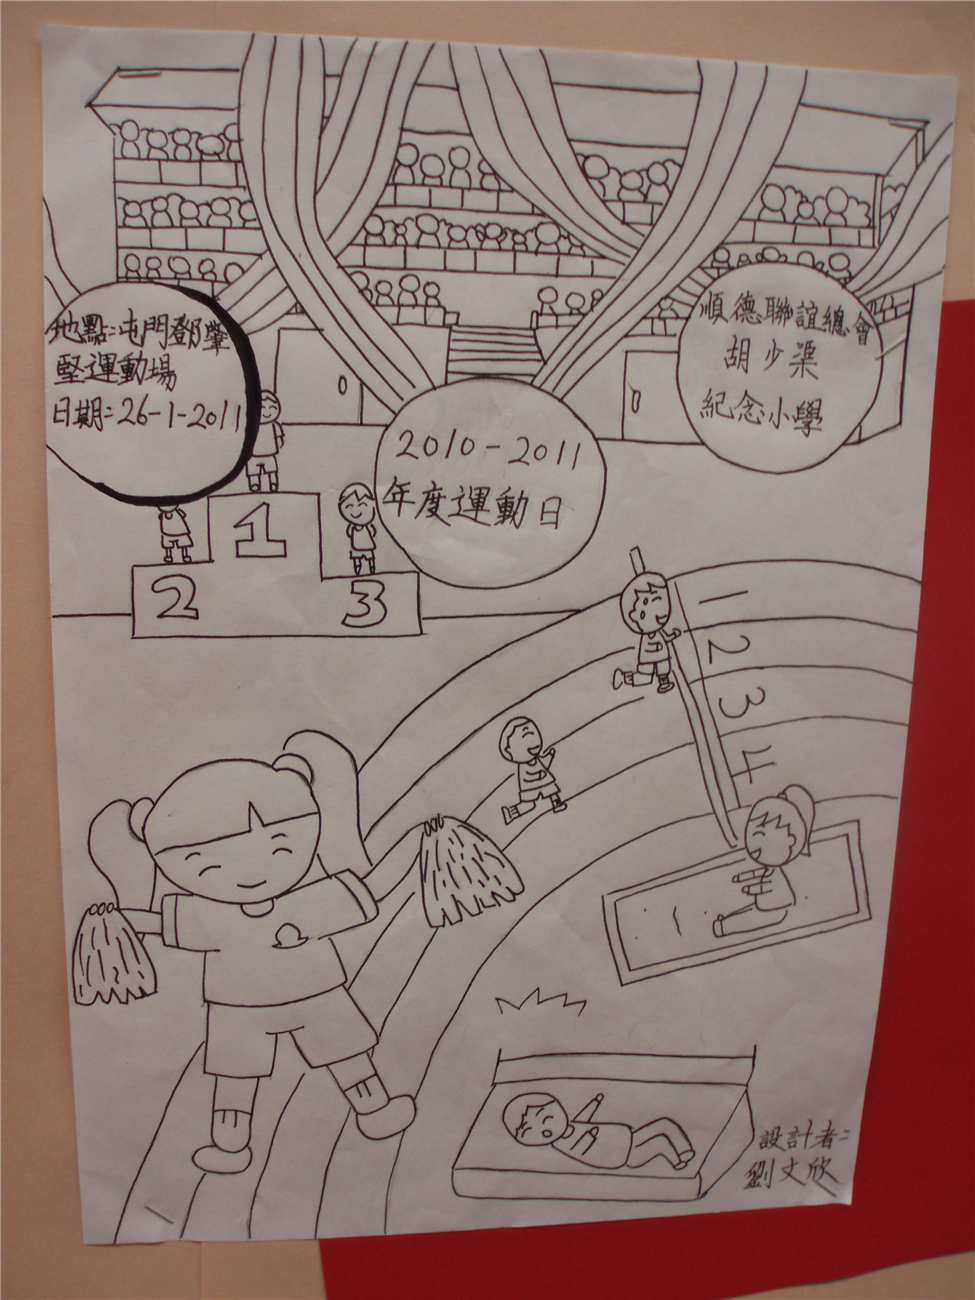 地點:屯門鄧肇
堅運動場
日期:26-1-2011
2010-2011
年度運動日
順德聯誼總會
胡少渠
紀念小學
1
2
3
1
2
3
4
設計者:
劉文欣